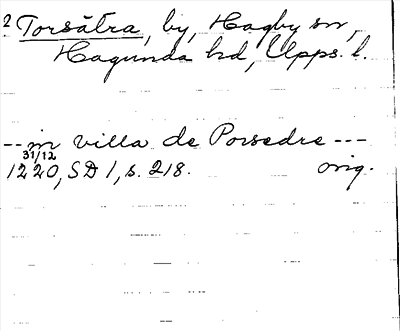 2 Torsåtra, by, Hagby sn,
Hagunda hd, Upps. l.
--- in villa de Porsedre ---
31/12
1220, SD 1, s. 218. orig.